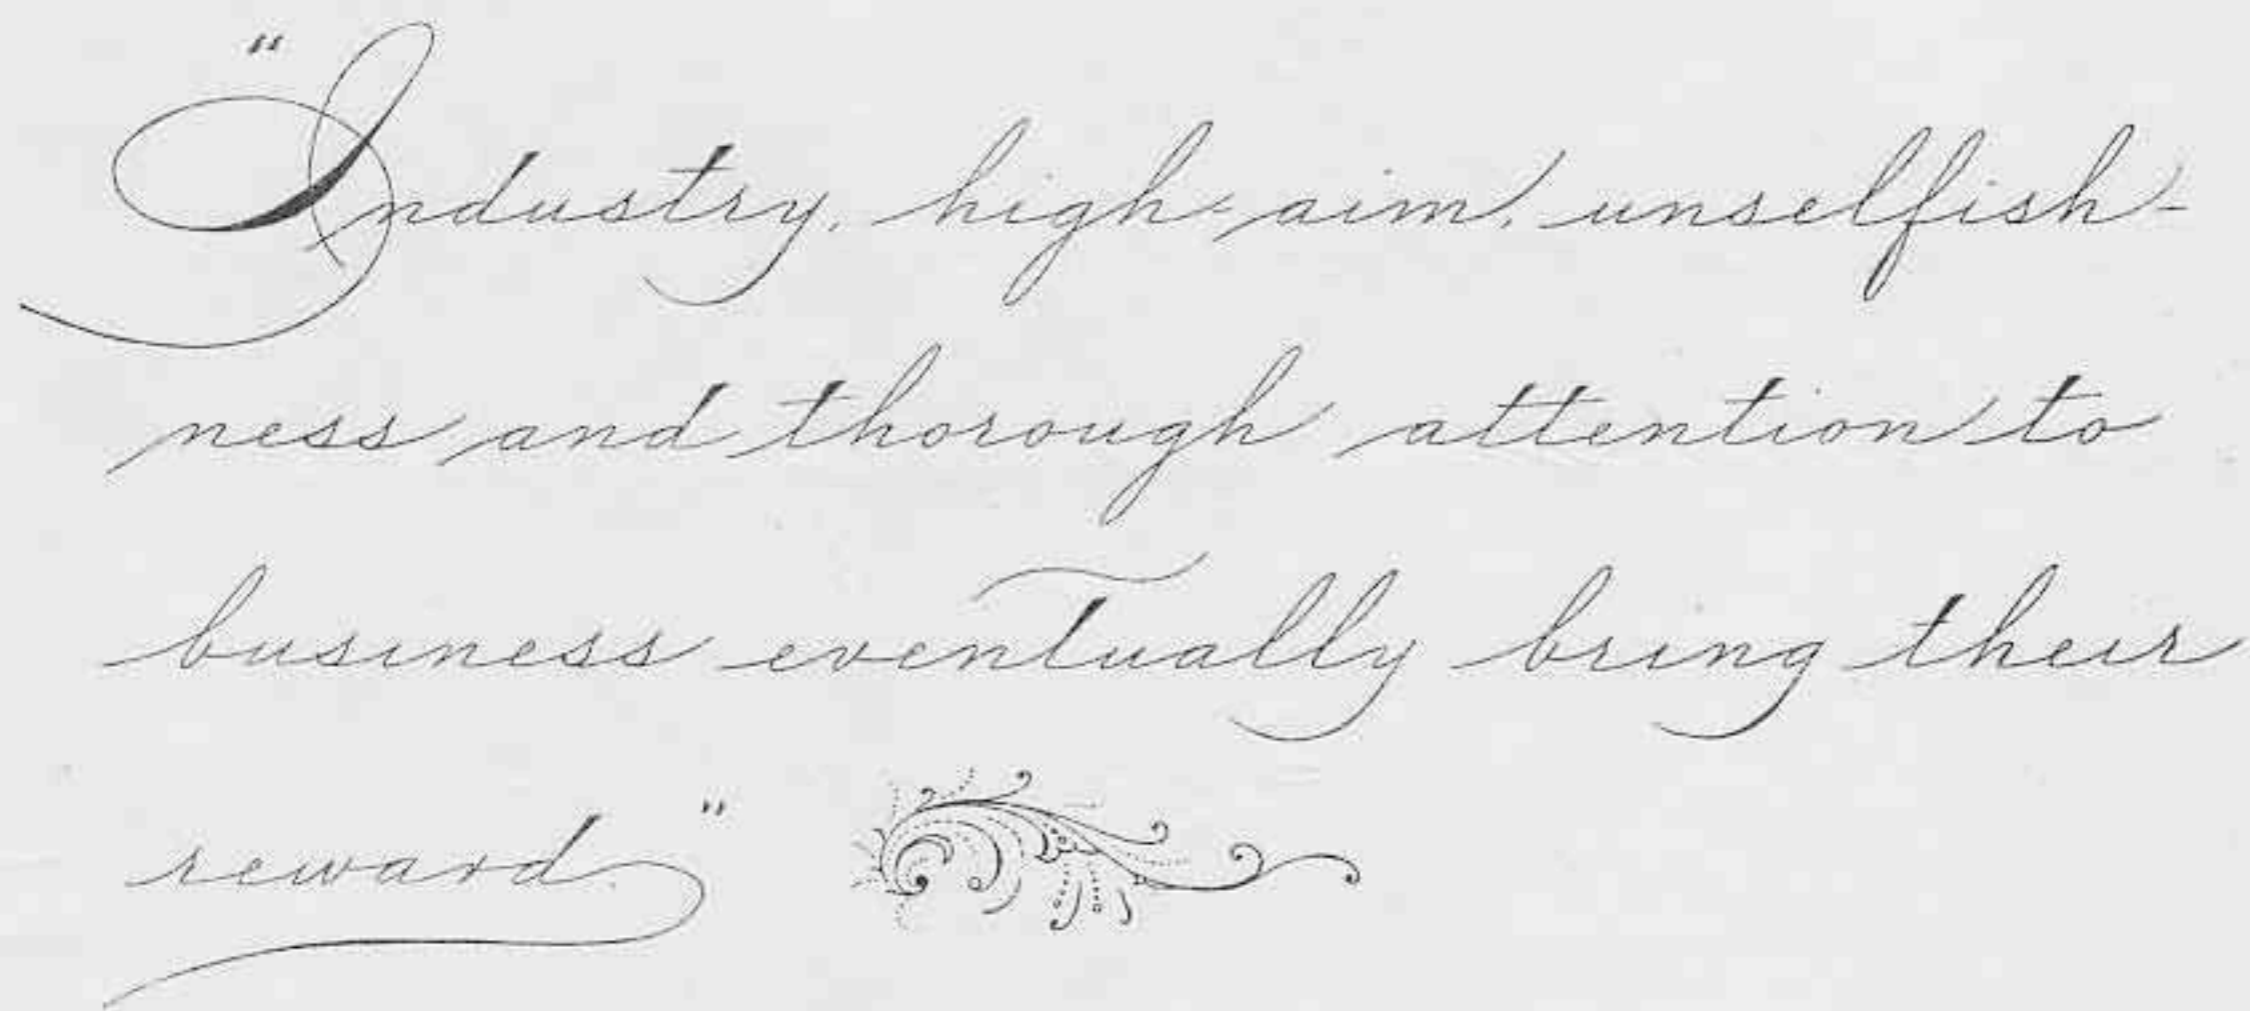 "Industry, high-aim, unselfish-
ness and thorough attention to
business eventually bring their
reward."